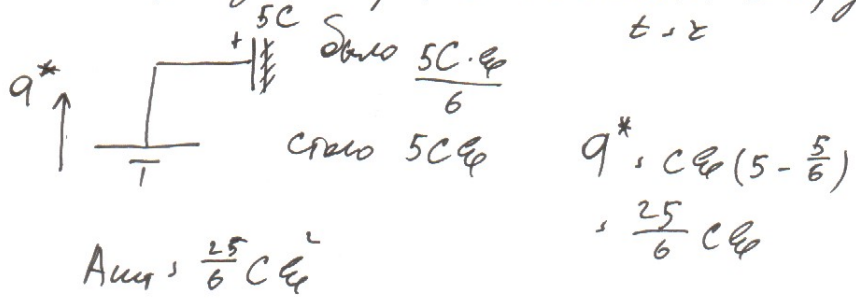 5C
t = τ
+
было 5C·ℰ/6
q*
стало 5Cℰ
q* = Cℰ(5 - 5/6)
= 25/6 Cℰ
Aист = 25/6 Cℰ²